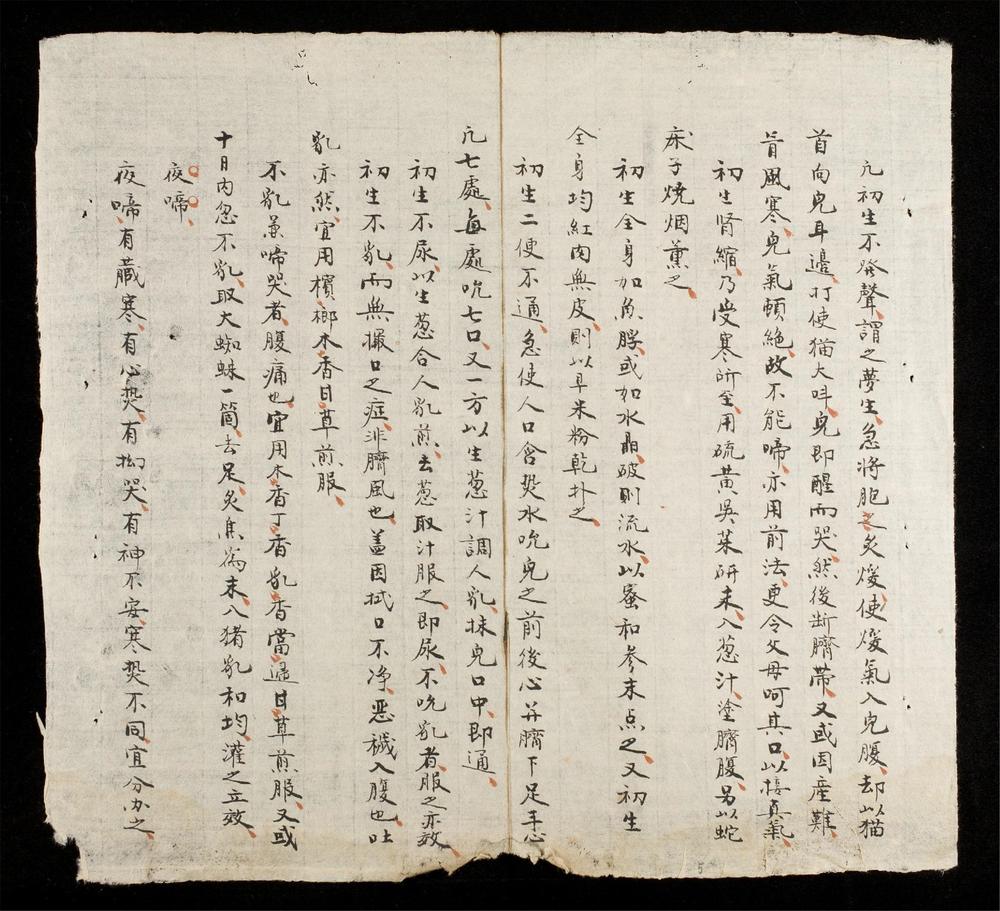 凢初生不發聲、謂之夢生、急將胞之炙煖、使煖氣入兒腹、却以猫
首向兒耳邊、打使猫大呌、兒即醒而哭、然後断臍帶、又或因産難
冐風寒、兒氣頓絶、故不能啼、亦用前法、更令父母呵其口以接真氣、
初生肾縮、乃受寒所至、用硫黄吳茱研末、入葱汁、塗臍腹、另以蛇
床子燒烟薰之、
初生全身如魚脬、或如水晶、破則流水、以蜜和參末点之、又初生
全身均紅肉無皮、則以早米粉乾扑之、
初生二便不通、急使人口含㷫水吮兒之前後心并臍下足手心
凢七處、每處吮七口、又一方以生葱汁調人乳、抹兒口中、即通
初生不尿、以生葱合人乳煎、去葱取汁服之、即尿、不吮乳者、服之亦效、
初生不乳、而無撮口之症、非臍風也、盖因拭口不净、恶穢入腹也、吐
乳亦然、宜用檳榔木香甘草煎服、
不乳兼啼哭者、腹痛也、宜用木香丁香乳香當逥甘草煎服、又或
十日內忽不乳、取大蜘蛛一箇、去足、炙焦為末、八猪乳和均、灌之立效、
夜啼、
夜啼、有藏寒、有心㷫、有拗哭、有神不安、寒㷫不同、宜分办之